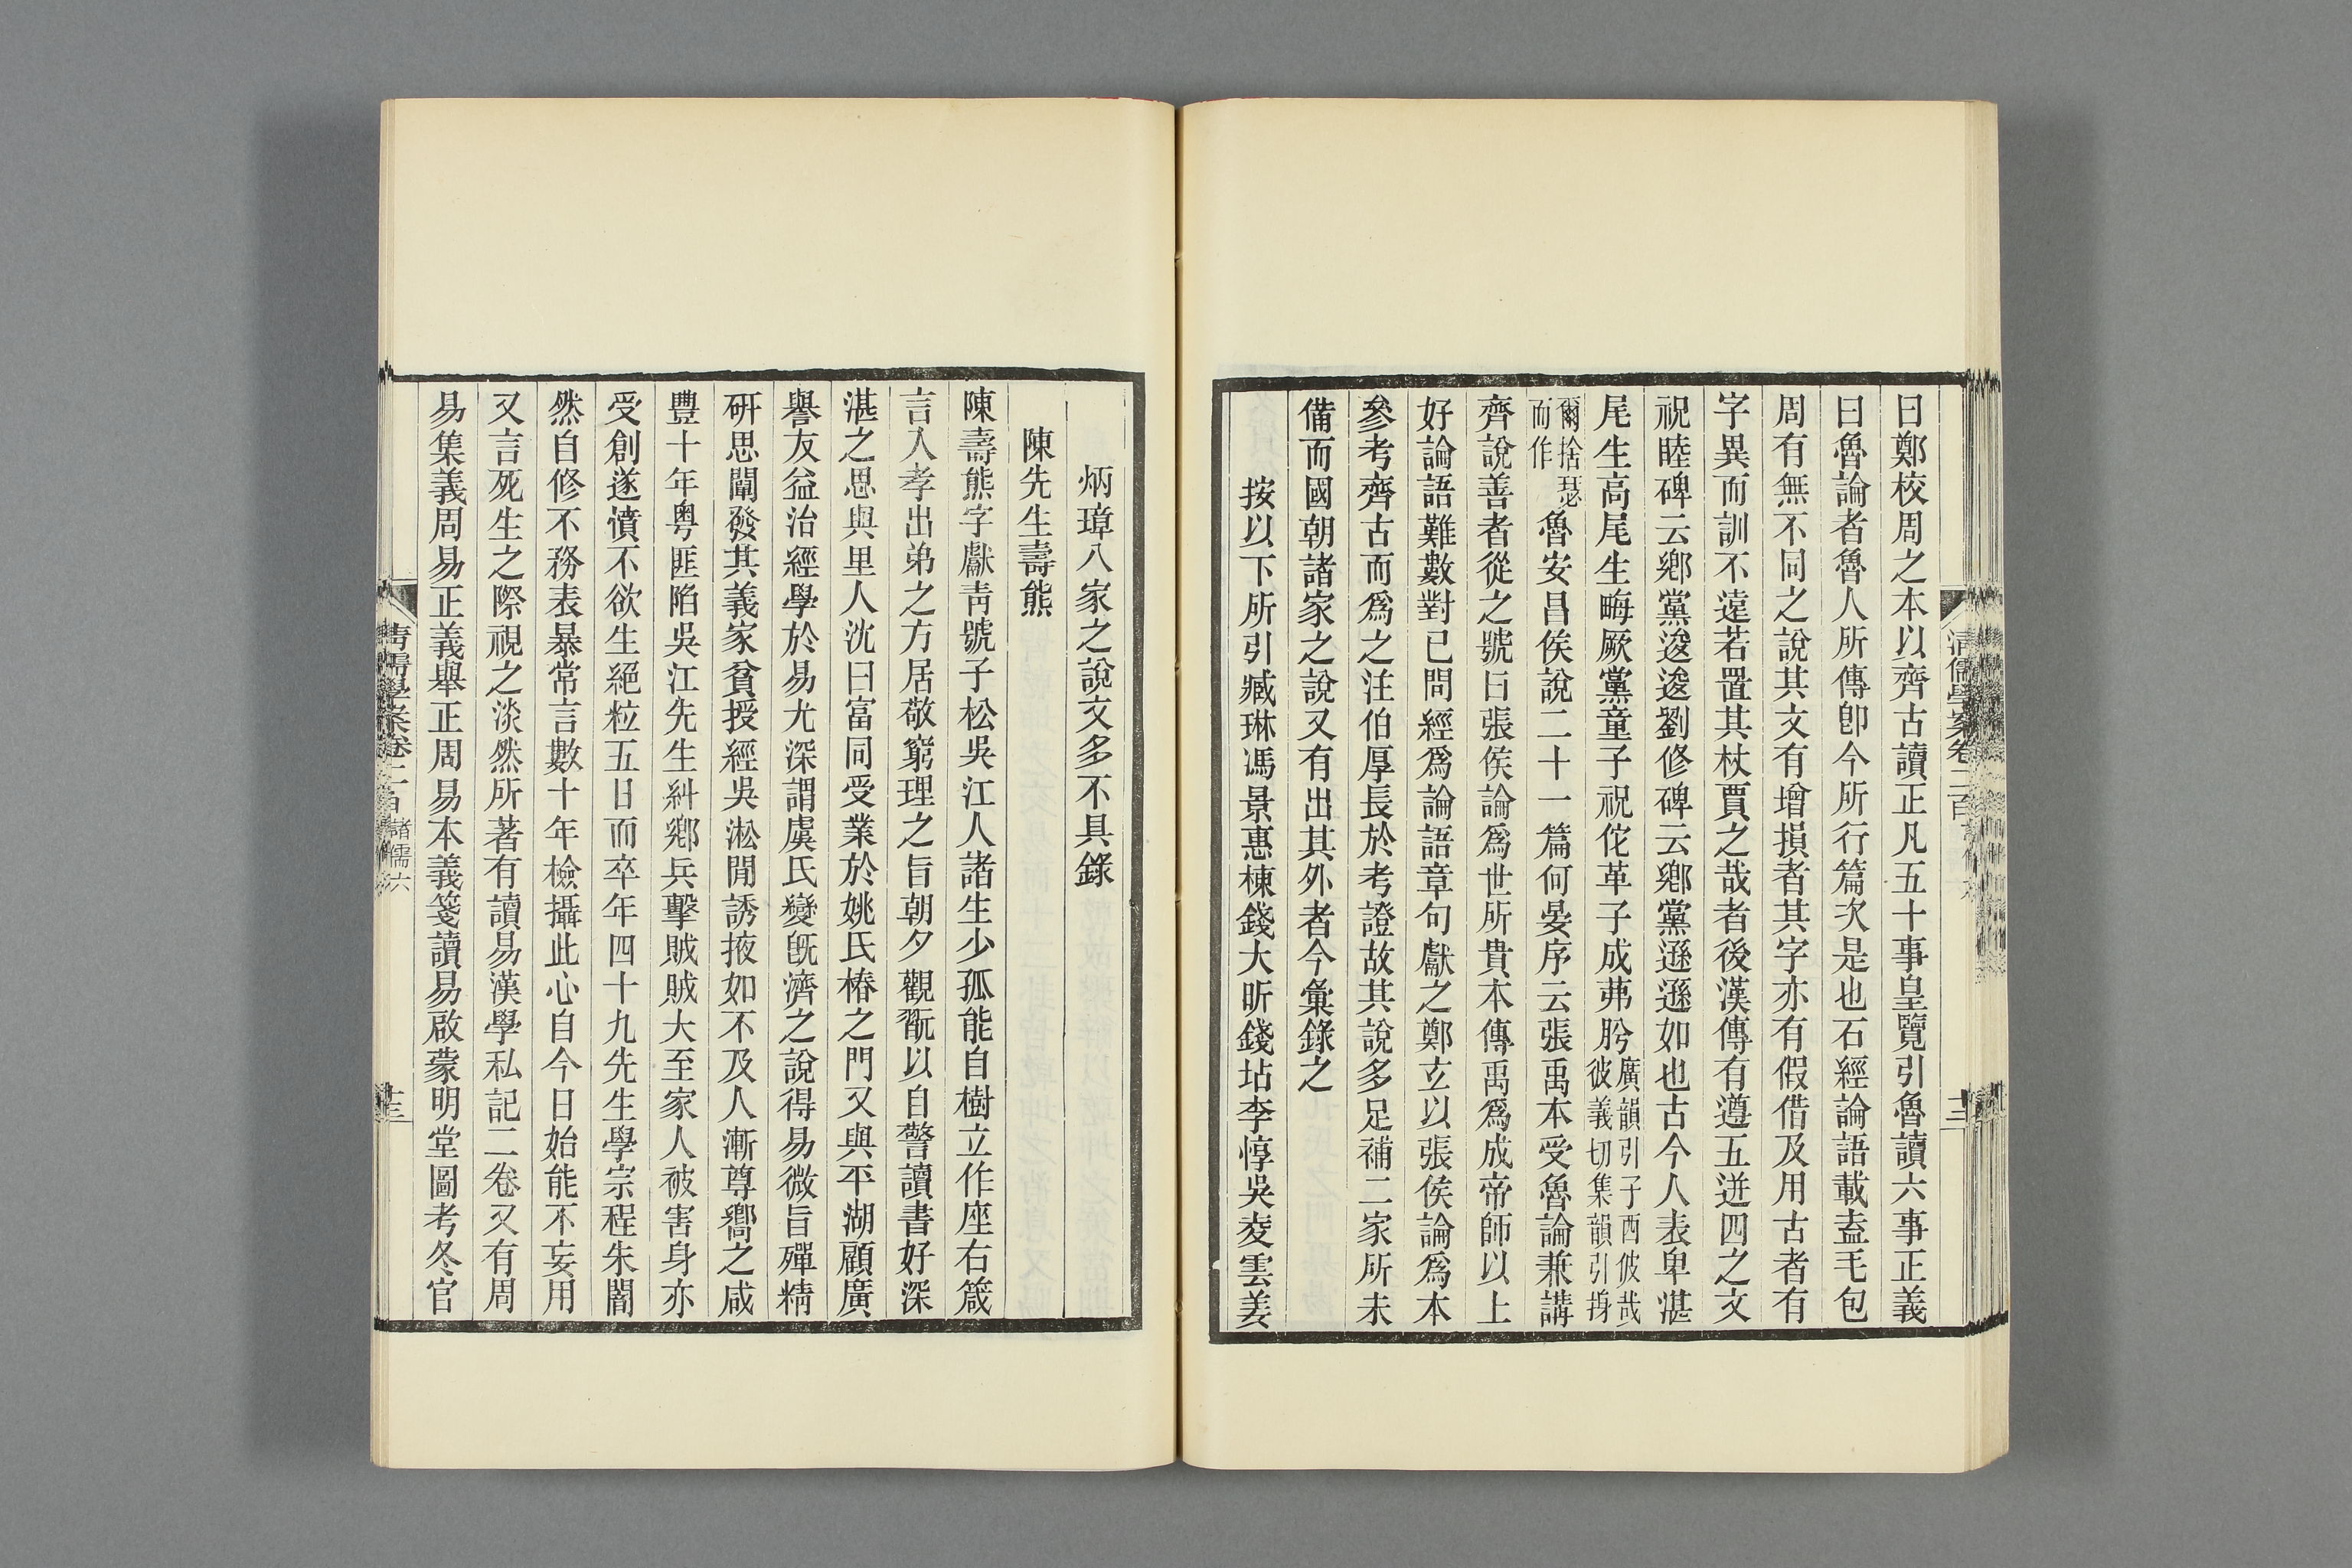 曰鄭校周之本以齊古讀正凡五十事皇覽引魯讀六事正義
曰魯論者魯人所傳卽今所行篇次是也石經論語載盍毛包
周有無不同之說其文有增損者其字亦有假借及用古者有
字異而訓不遠若置其杖賈之哉者後漢傳有遵五迸四之文
祝睦碑云鄉黨逡逡劉修碑云鄉黨遜遜如也古今人表卑湛
尾生高尾生畮厥黨童子祝佗革子成茀肸廣韻引子西彼哉彼義切集韻引㧶
爾捨瑟而作魯安昌侯說二十一篇何晏序云張禹本受魯論兼講
齊說善者從之號曰張侯論爲世所貴本傳禹爲成帝師以上
好論語難數對已問經爲論語章句獻之鄭玄以張侯論爲本
參考齊古而爲之注伯厚長於考證故其說多足補二家所未
備而國朝諸家之說又有出其外者今彙錄之
按以下所引臧琳馮景惠棟錢大昕錢坫李惇吳夌雲姜
清儒學案卷二百
十二
炳璋八家之說文多不具錄
陳先生壽熊
陳壽熊字獻靑號子松吳江人諸生少孤能自樹立作座右箴
言入孝出弟之方居敬窮理之旨朝夕觀翫以自警讀書好深
湛之思與里人沈曰富同受業於姚氏椿之門又與平湖顧廣
譽友益治經學於易尤深謂虞氏變旣濟之說得易微旨殫精
硏思闡發其義家貧授經吳淞閒誘掖如不及人漸尊嚮之咸
豐十年粵匪陷吳江先生糾鄉兵擊賊賊大至家人被害身亦
受創遂憤不欲生絕粒五日而卒年四十九先生學宗程朱闇
然自修不務表暴常言數十年檢攝此心自今日始能不妄用
又言死生之際視之淡然所著有讀易漢學私記二卷又有周
易集義周易正義舉正周易本義箋讀易啟蒙明堂圖考冬官
清儒學案卷二百 諸儒六
十三